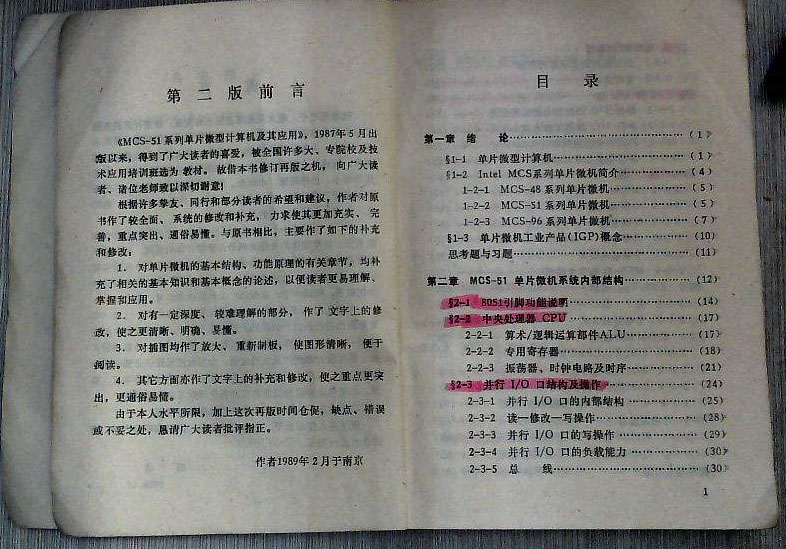 第二版前言
《MCS-51系列单片微型计算机及其应用》，1987年5月出
版以来，得到了广大读者的喜爱，被全国许多大、专院校及技
术应用培训班选为教材。故借本书修订再版之机，向广大读
者、诸位老师致以深切谢意！
根据许多挚友、同行和部分读者的希望和建议，作者对原
书作了较全面、系统的修改和补充，力求使其更加充实、完
善，重点突出、通俗易懂。与原书相比，主要作了如下的补充
和修改：
1. 对单片微机的基本结构、功能原理的有关章节，均补
充了相关的基本知识和基本概念的论述，以便读者更易理解、
掌握和应用。
2. 对有一定深度、较难理解的部分，作了文字上的修
改，使之更清晰、明确、易懂。
3. 对插图均作了放大、重新制板，使图形清晰，便于
阅读。
4. 其它方面亦作了文字上的补充和修改，使之重点更突
出，更通俗易懂。
由于本人水平所限，加上这次再版时间仓促，缺点、错误
或不妥之处，恳请广大读者批评指正。
作者1989年2月于南京
目录
第一章 绪论……(1)
§1-1 单片微型计算机……(1)
§1-2 Intel MCS系列单片微机简介……(4)
1-2-1 MCS-48系列单片微机……(5)
1-2-2 MCS-51系列单片微机……(5)
1-2-3 MCS-96系列单片微机……(7)
§1-3 单片微机工业产品(IGP)概念……(10)
思考题与习题……(11)
第二章 MCS-51 单片微机系统内部结构……(12)
§2-1 8051引脚功能说明……(14)
§2-2 中央处理器 CPU……(17)
2-2-1 算术/逻辑运算部件ALU……(17)
2-2-2 专用寄存器……(18)
2-2-3 振荡器、时钟电路及时序……(21)
§2-3 并行 I/O 口结构及操作……(24)
2-3-1 并行 I/O 口的内部结构……(25)
2-3-2 读—修改—写操作……(28)
2-3-3 并行 I/O 口的写操作……(29)
2-3-4 并行 I/O 口的负载能力……(30)
2-3-5 总线……(30)
1